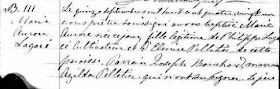 B. 111
Marie
Aurore
Lagacé
Le quinze septembre mil huit cent quatre vingt
nous prêtre soussigné avons baptisé Marie
Aurore née ce jour, fille légitime de Philippe Lagacé
cultivateur et d'Pelletier de cette
paroisse. Parrain Joseph marraine
Pelletier qui n'ont su signer. Le père